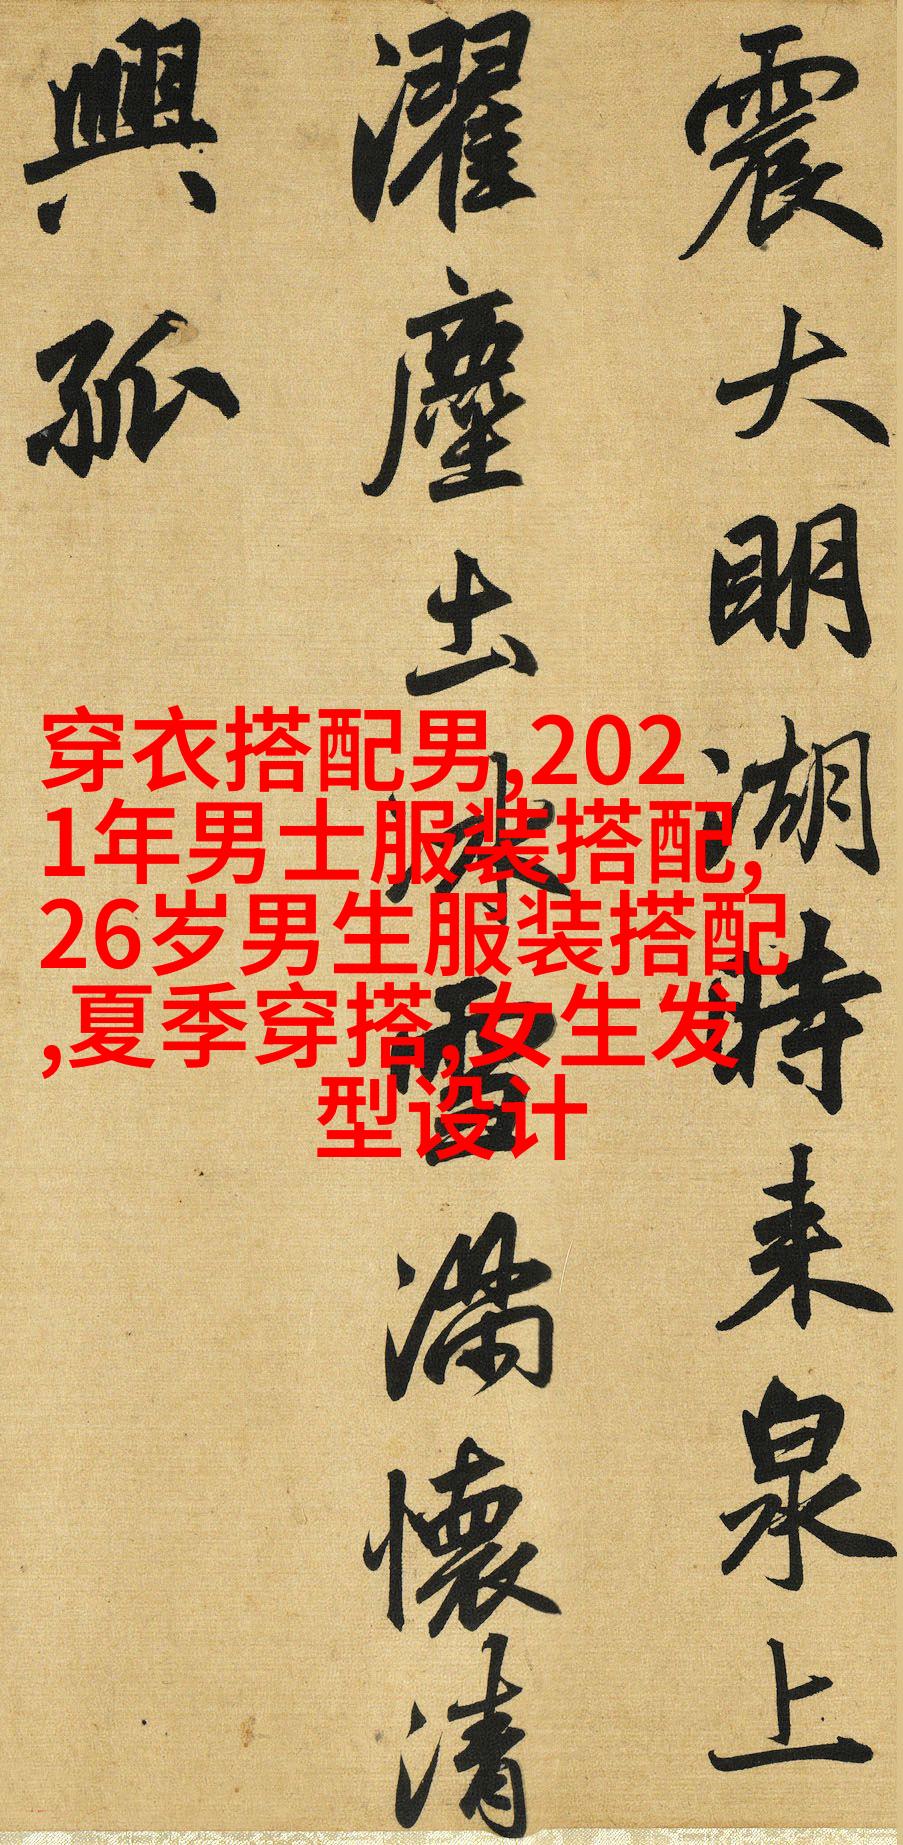 震大明湖時来泉上
濯塵出冰雪滿懷清
興孤
穿衣搭配男,202
1年男士服装搭配,
26岁男生服装搭配
,夏季穿搭,女生发
型设计